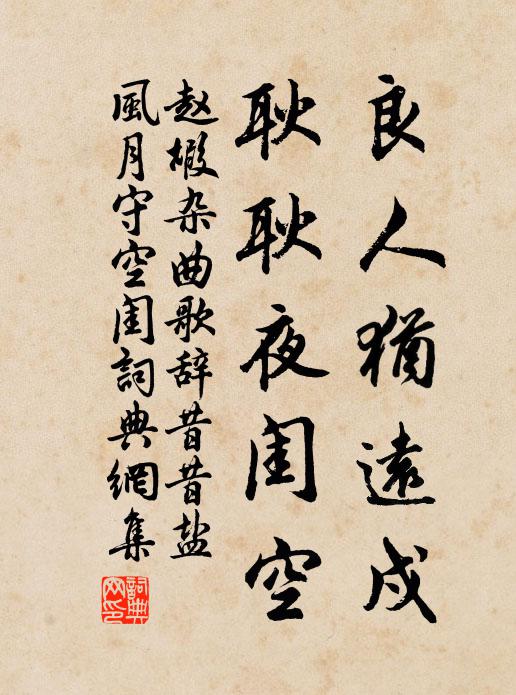 良人犹遠戍
耿耿夜闺空
赵嘏杂曲歌辞昔昔盐
風月守空闺詞典網集
詞典网印